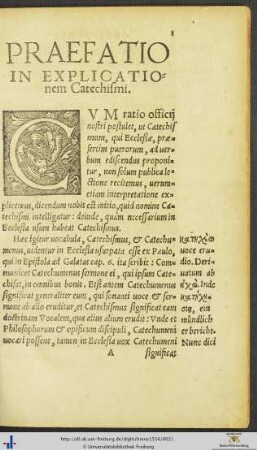 1
PRAEFATIO
IN EXPLICATIO-
nem Catechismi.
CVM ratio officij
nostri postulet, ut Catechis
mum, qui Ecclesiæ, præ-
sertim puerorum, ad ver-
bum ediscendus proponi-
tur, non solum publica le-
ctione recitemus, uerum-
etiam interpretatione ex-
plicemus, dicendum uobis est initio, quid nomine Ca-
techismi intelligatur: deinde, quàm necessarium in
Ecclesia usum habeat Catechismus.
Hæc igitur uocabula, Catechismus, & Catechu-
menus, uidentur in Ecclesia usurpata esse ex Paulo,
qui in Epistola ad Galatas cap. 6. ita scribit: Com-
municet Catechumenus sermone ei, qui ipsum Cate-
chisat, in omnibus bonis. Etsi autem Catechumenus
significat generaliter eum, qui sonanti uoce & ser-
mone ab alio eruditur, et Catechismus significat eam
doctrinam Vocalem, qua alius alium erudit: Vnde et
Philosophorum & opificum discipuli, Catechumeni
uocari possent, tamen in Ecclesia uox Catechumeni
A significat
uoce eru-
dio. Deri-
uatum ab
ein
mündlich
er bericht.
Nunc dici
http://dl.ub.uni-freiburg.de/diglit/
© Universitätsbibliothek Freiburg
Baden-Württemberg